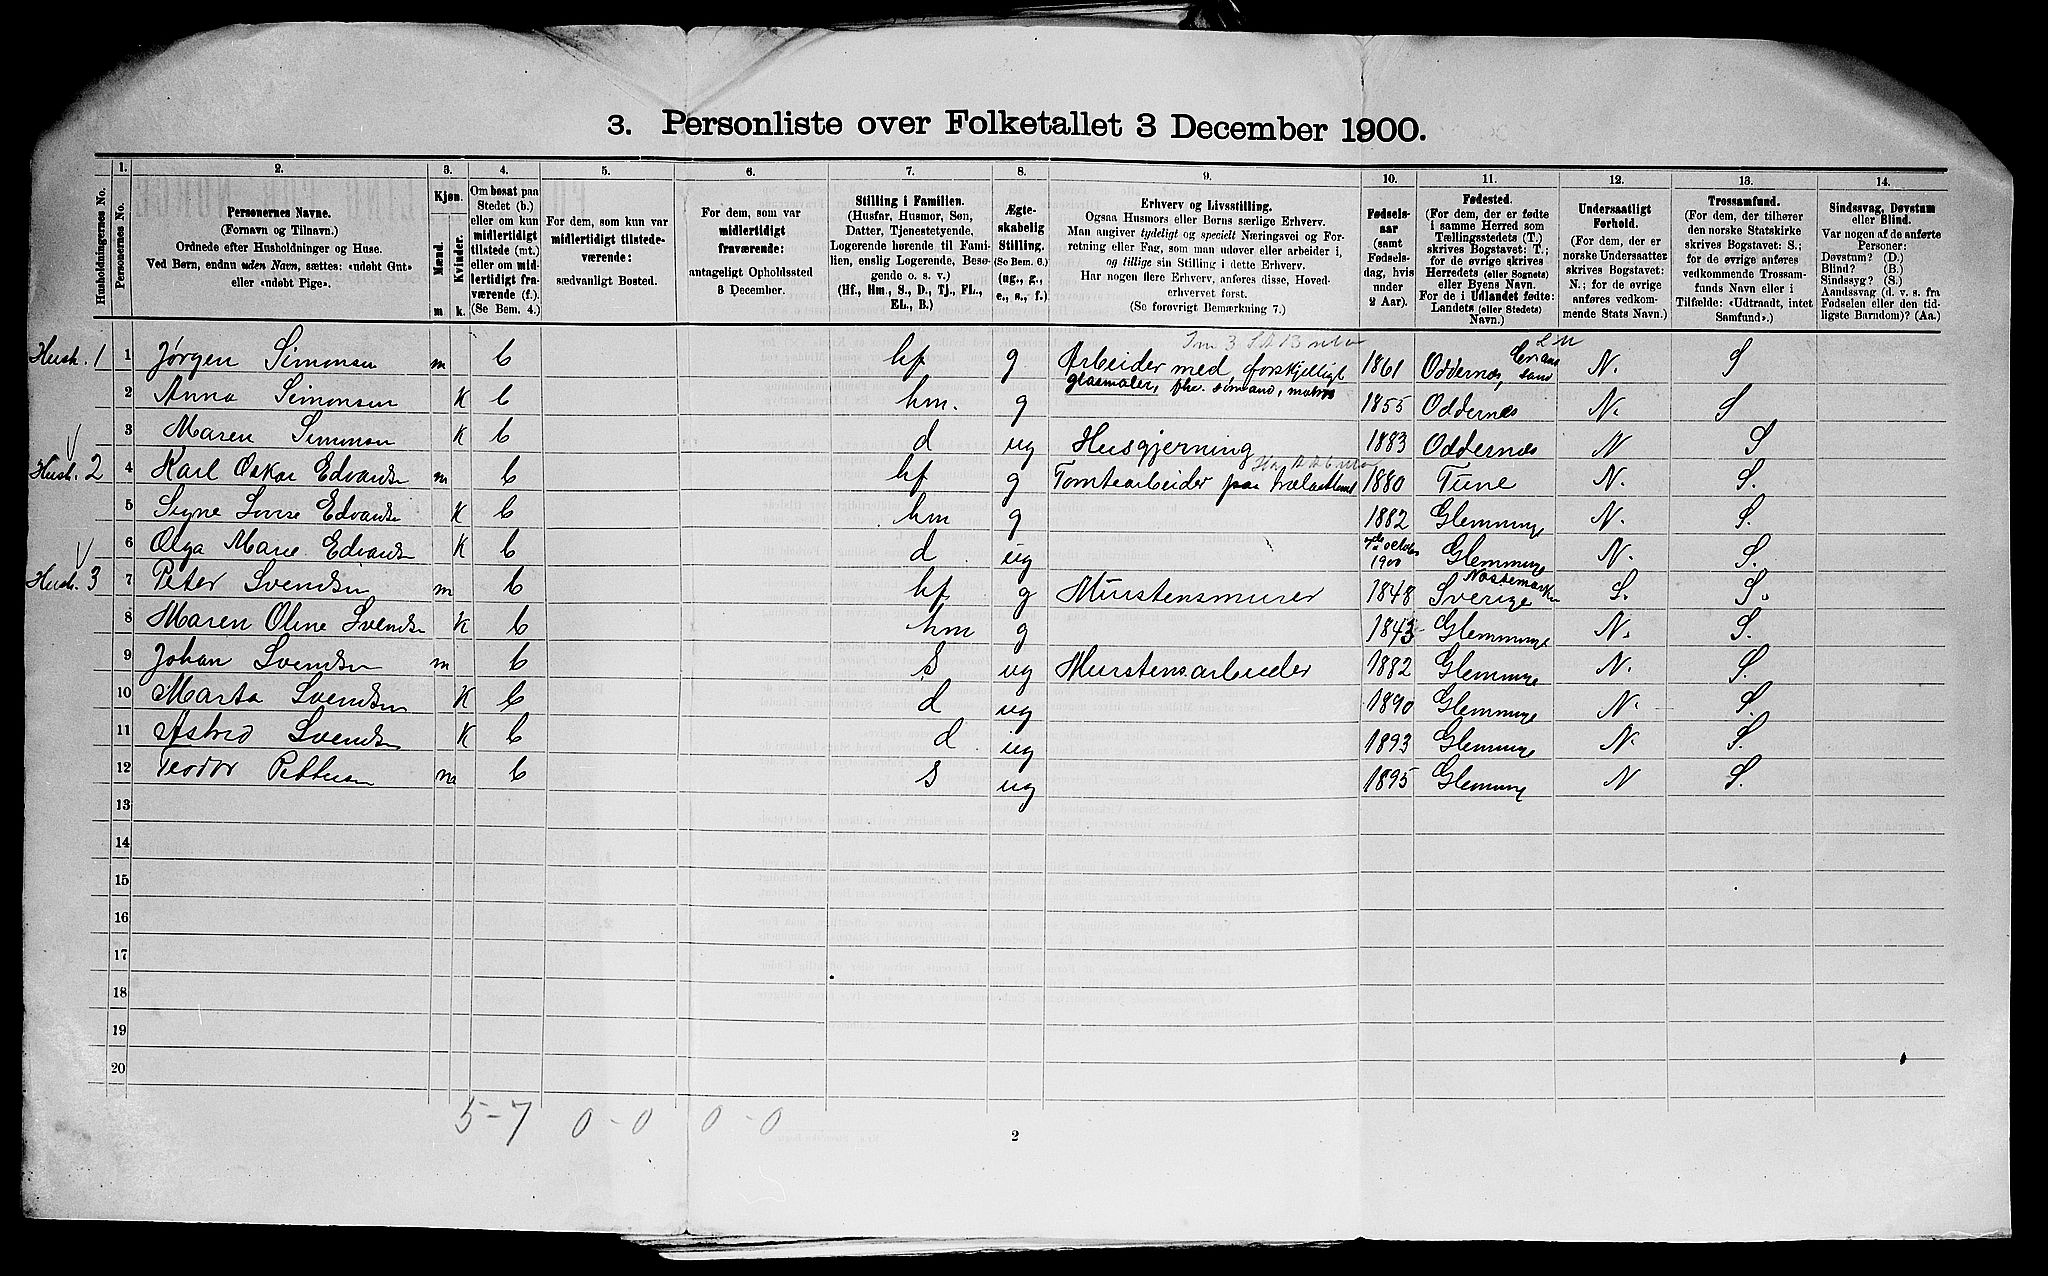 3. Personliste over Folketallet 3 December 1900.
Husholdningernes No.
1. Personernes No.
2. Personernes Navne. (Fornavn og Tilnavn.) Ordnede efter Husholdninger og Huse. Ved Børn, endnu uden Navn, sættes: «udøbt Gut» eller «udøbt Pige».
3. Kjøn. Mænd. Kvinder. m k.
4. Om bosat paa Stedet (b.) eller om kun midlertidigt tilstede (mt.) eller om midlertidigt fraværende (f.). (Se Bem. 4.)
5. For dem, som kun var midlertidigt tilstedeværende: sædvanligt Bosted.
6. For dem, som var midlertidigt fraværende: antageligt Opholdssted 3 December.
7. Stilling i Familien. (Husfar, Husmor, Søn, Datter, Tjenestetyende, Logerende hørende til Familien, enslig Logerende, Besøgende o. s. v.) (Hf., Hm., S., D., Tj., FL., EL., B.)
8. Ægteskabelig Stilling. (Se Bem. 6.) (ug., g., e., s., f.)
9. Erhverv og Livsstilling. Ogsaa Husmors eller Børns særlige Erhverv. Man angiver tydeligt og specielt Næringsvei og Forretning eller Fag, som man udøver eller arbeider i, og tillige sin Stilling i dette Erhverv. Har nogen flere Erhverv, anføres disse, Hovederhvervet først. (Se forøvrigt Bemærkning 7.)
10. Fødselsaar (samt Fødselsdag, hvis under 2 Aar).
11. Fødested. (For dem, der er fødte i samme Herred som Tællingsstedets (T.) skrives Bogstavet: T.; for de øvrige skrives Herredets (eller Sognets) eller Byens Navn. For de i Udlandet fødte: Landets (eller Stedets) Navn.)
12. Undersaatligt Forhold. (For dem, der er norske Undersaatter skrives Bogstavet: N.; for de øvrige anføres vedkommende Stats Navn.)
13. Trossamfund. (For dem, der tilhører den norske Statskirke skrives Bogstavet: S.; for de øvrige anføres vedkommende Trossamfunds Navn eller i Tilfælde: «Udtraadt, intet Samfund».)
14. Sindssvag, Døvstum eller Blind. Var nogen af de anførte Personer: Døvstum? (D.) Blind? (B.) Sindssyg? (S.) Aandssvag (d. v. s. fra Fødselen eller den tidligste Barndom)? (Aa.)
Husk. 1 1 Jørgen Simonsen m b hf g Arbeider med forskjelligt 1861 Oddernes, N. S
glasmaler,
2 Anna Simonsen K b hm. g 1855 Oddernes N. S
3 Maren Simonsen K b d ug Husgjerning 1883 Oddernes N S
Husk. 2 4 Karl Oskar Edvardsen m b hf g Tomtearbeider paa 1880 Tune N. S.
5 Signe Lovise Edvardsen K b hm g 1882 Glemminge N. S.
6 Olga Marie Edvardsen K b d ug 7de october 1900 Glemminge N. S.
Husk. 3 7 Peter Svendsen m b hf g Murstensmurer 1848 Sverige S. S.
8 Maren Oline Svendsen K b hm g 1843 Glemminge N. S.
9 Johan Svendsen m b S ug Murstensarbeider 1882 Glemminge N. S.
10 Marta Svendsen K b d ug 1890 Glemminge N. S.
11 Astrid Svendsen K b d ug 1893 Glemminge N. S.
12 Teodor Pettersen m b S ug 1895 Glemminge N S.
13
14
15
16
17
18
19
20
5-7 0-0 0-0
2